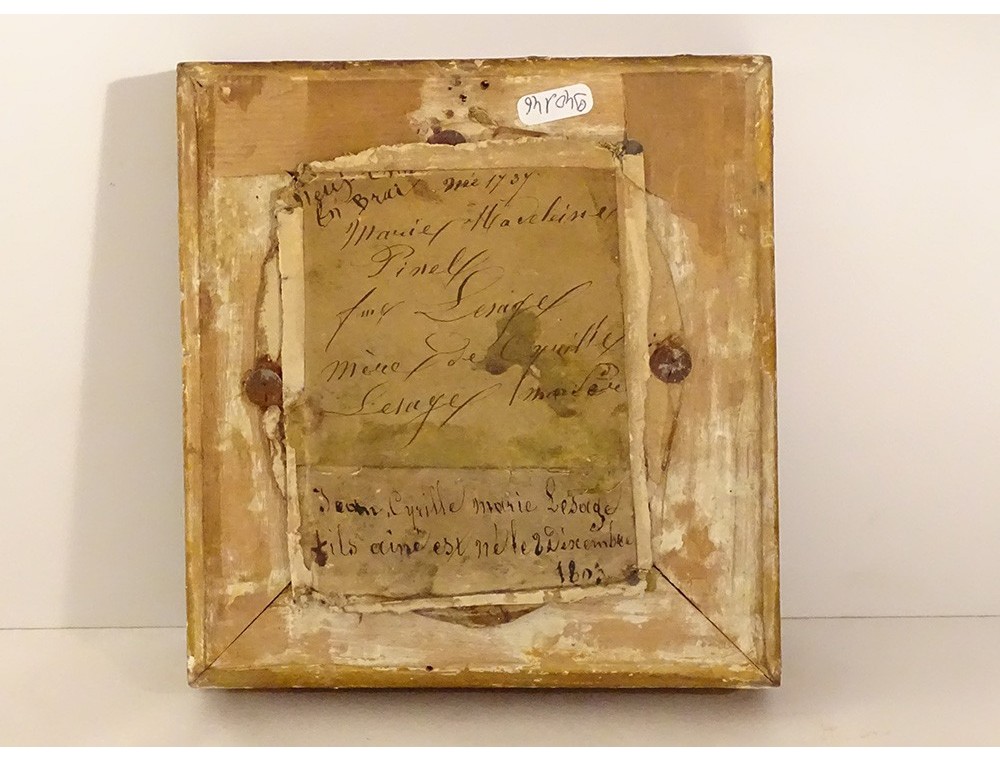 940146
En Brai née 1737
Marie Madeleine
Pinel
fme Lesage
mère de Cyrille
Lesage
Jean, Cyrille marie Lesage
fils ainé est né le 2 Décembre
1803